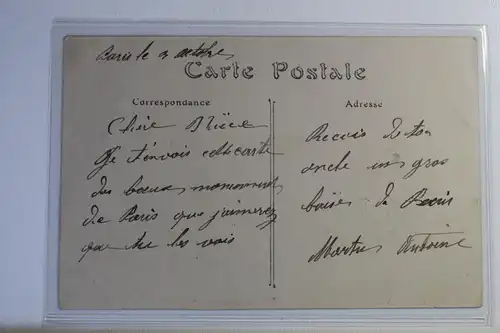 Paris le 3 octobre
Carte Postale
Correspondance
Chère Nièce
Je t'envois cette carte
des beaux monuments
de Paris que j'aimerez
que tu les vois
Adresse
Recois de ton
oncle un gros
baisés de Paris
Martin Antoine